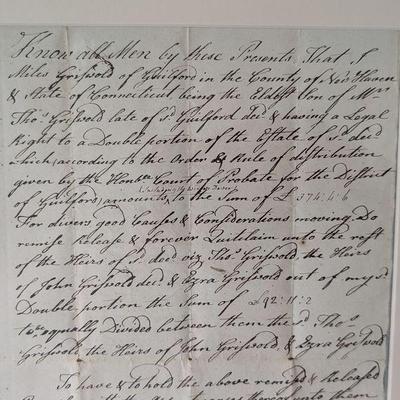 Know all Men by these Presents That I
Miles Griswold of Guilford in the County of New Haven
& State of Connecticut being the Eldest Son of Mr
Thos Griswold late of sd Guilford decd & having a Legal
Right to a Double portion of the Estate of sd decd
which according to the Order & Rule of distribution
given by the Honble Court of Probate for the District
of Guilford amounts to the Sum of £ 374:4:6
For divers good Causes & Considerations moving Do
remise Release & forever Quitclaim unto the rest
of the Heirs of sd decd viz Thos Griswold, the Heirs
of John Griswold decd & Ezra Griswold out of my sd
Double portion the Sum of £92:11:2
to be equally Divided between them the sd Thos
Griswold the Heirs of John Griswold, & Ezra Griswold
To have & to hold the above remised & Released
unto them